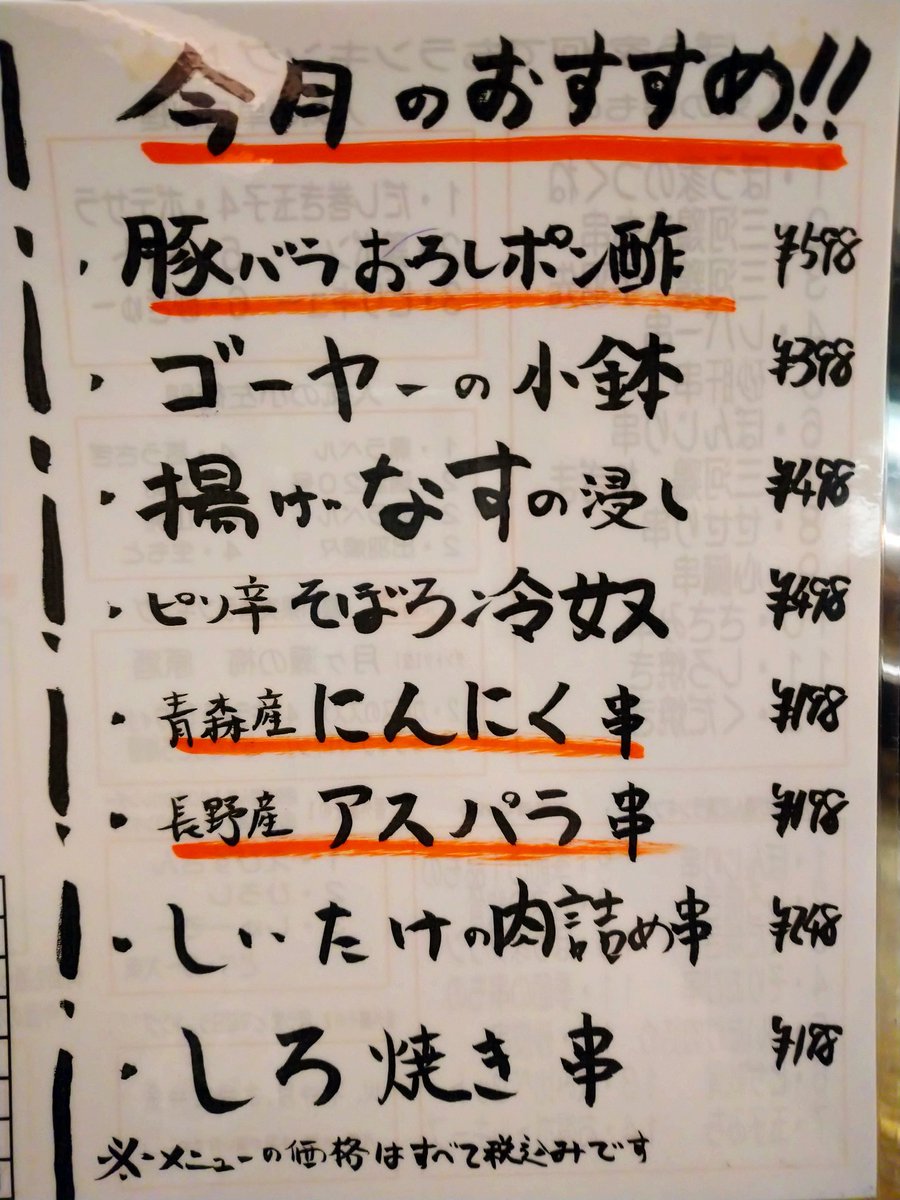 今月のおすすめ!!
・豚バラおろしポン酢 ¥598
・ゴーヤーの小鉢 ¥398
・揚げなすの浸し ¥498
・ピリ辛そぼろ冷奴 ¥498
・青森産にんにく串 ¥198
・長野産アスパラ串 ¥198
・しいたけの肉詰め串 ¥248
・しろ焼き串 ¥198
※メニューの価格はすべて税込みです